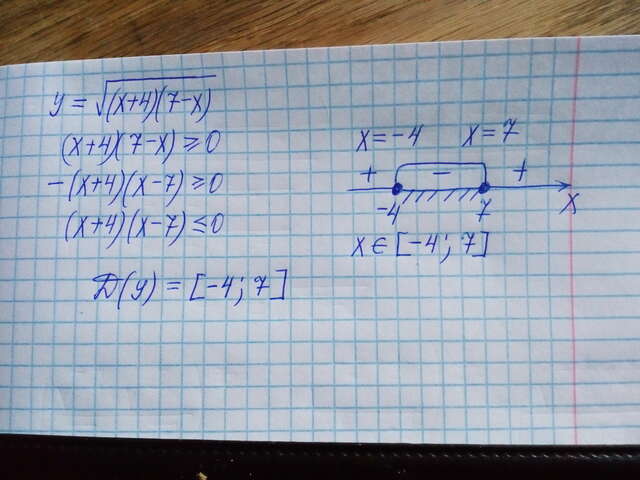 y = √(x+4)(7-x)
(x+4)(7-x) ≥ 0
-(x+4)(x-7) ≥ 0
(x+4)(x-7) ≤ 0
D(y) = [-4; 7]
x = -4 x = 7
+ - +
-4 7 x
x ∈ [-4; 7]